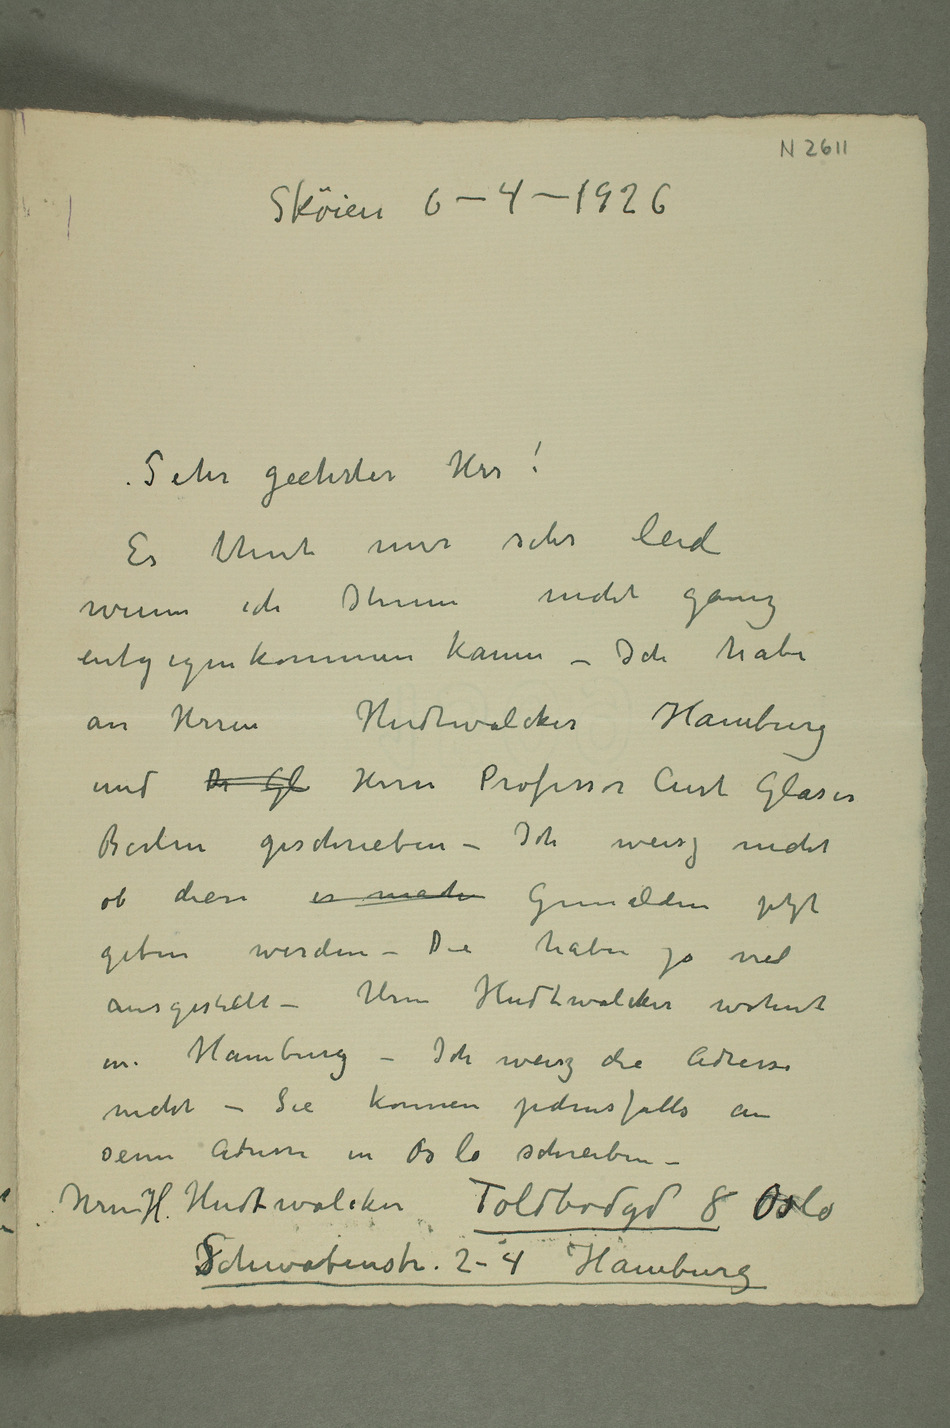 N 2611
Sköien 6–4–1926
Sehr geehrter Herr!
Es thut mir sehr leid
wenn ich Ihnen nicht ganz
entgegenkommen kann – Ich habe
an Herrn Hudtwalcker Hamburg
und Dr Gl Herrn Professor Curt Glaser
Berlin geschrieben – Ich weisz nicht
ob diese es machen Gemälden jetzt
geben werden – Die haben ja viel
ausgestellt – Herrn Hudtwalcker wohnt
in Hamburg – Ich weisz die Adresse
nicht – Sie können jedenfalls an
seine Adresse in Oslo schreiben –
Herrn H. Hudtwalcker Toldbodgd 8 Oslo
Schwabenstr. 2–4 Hamburg